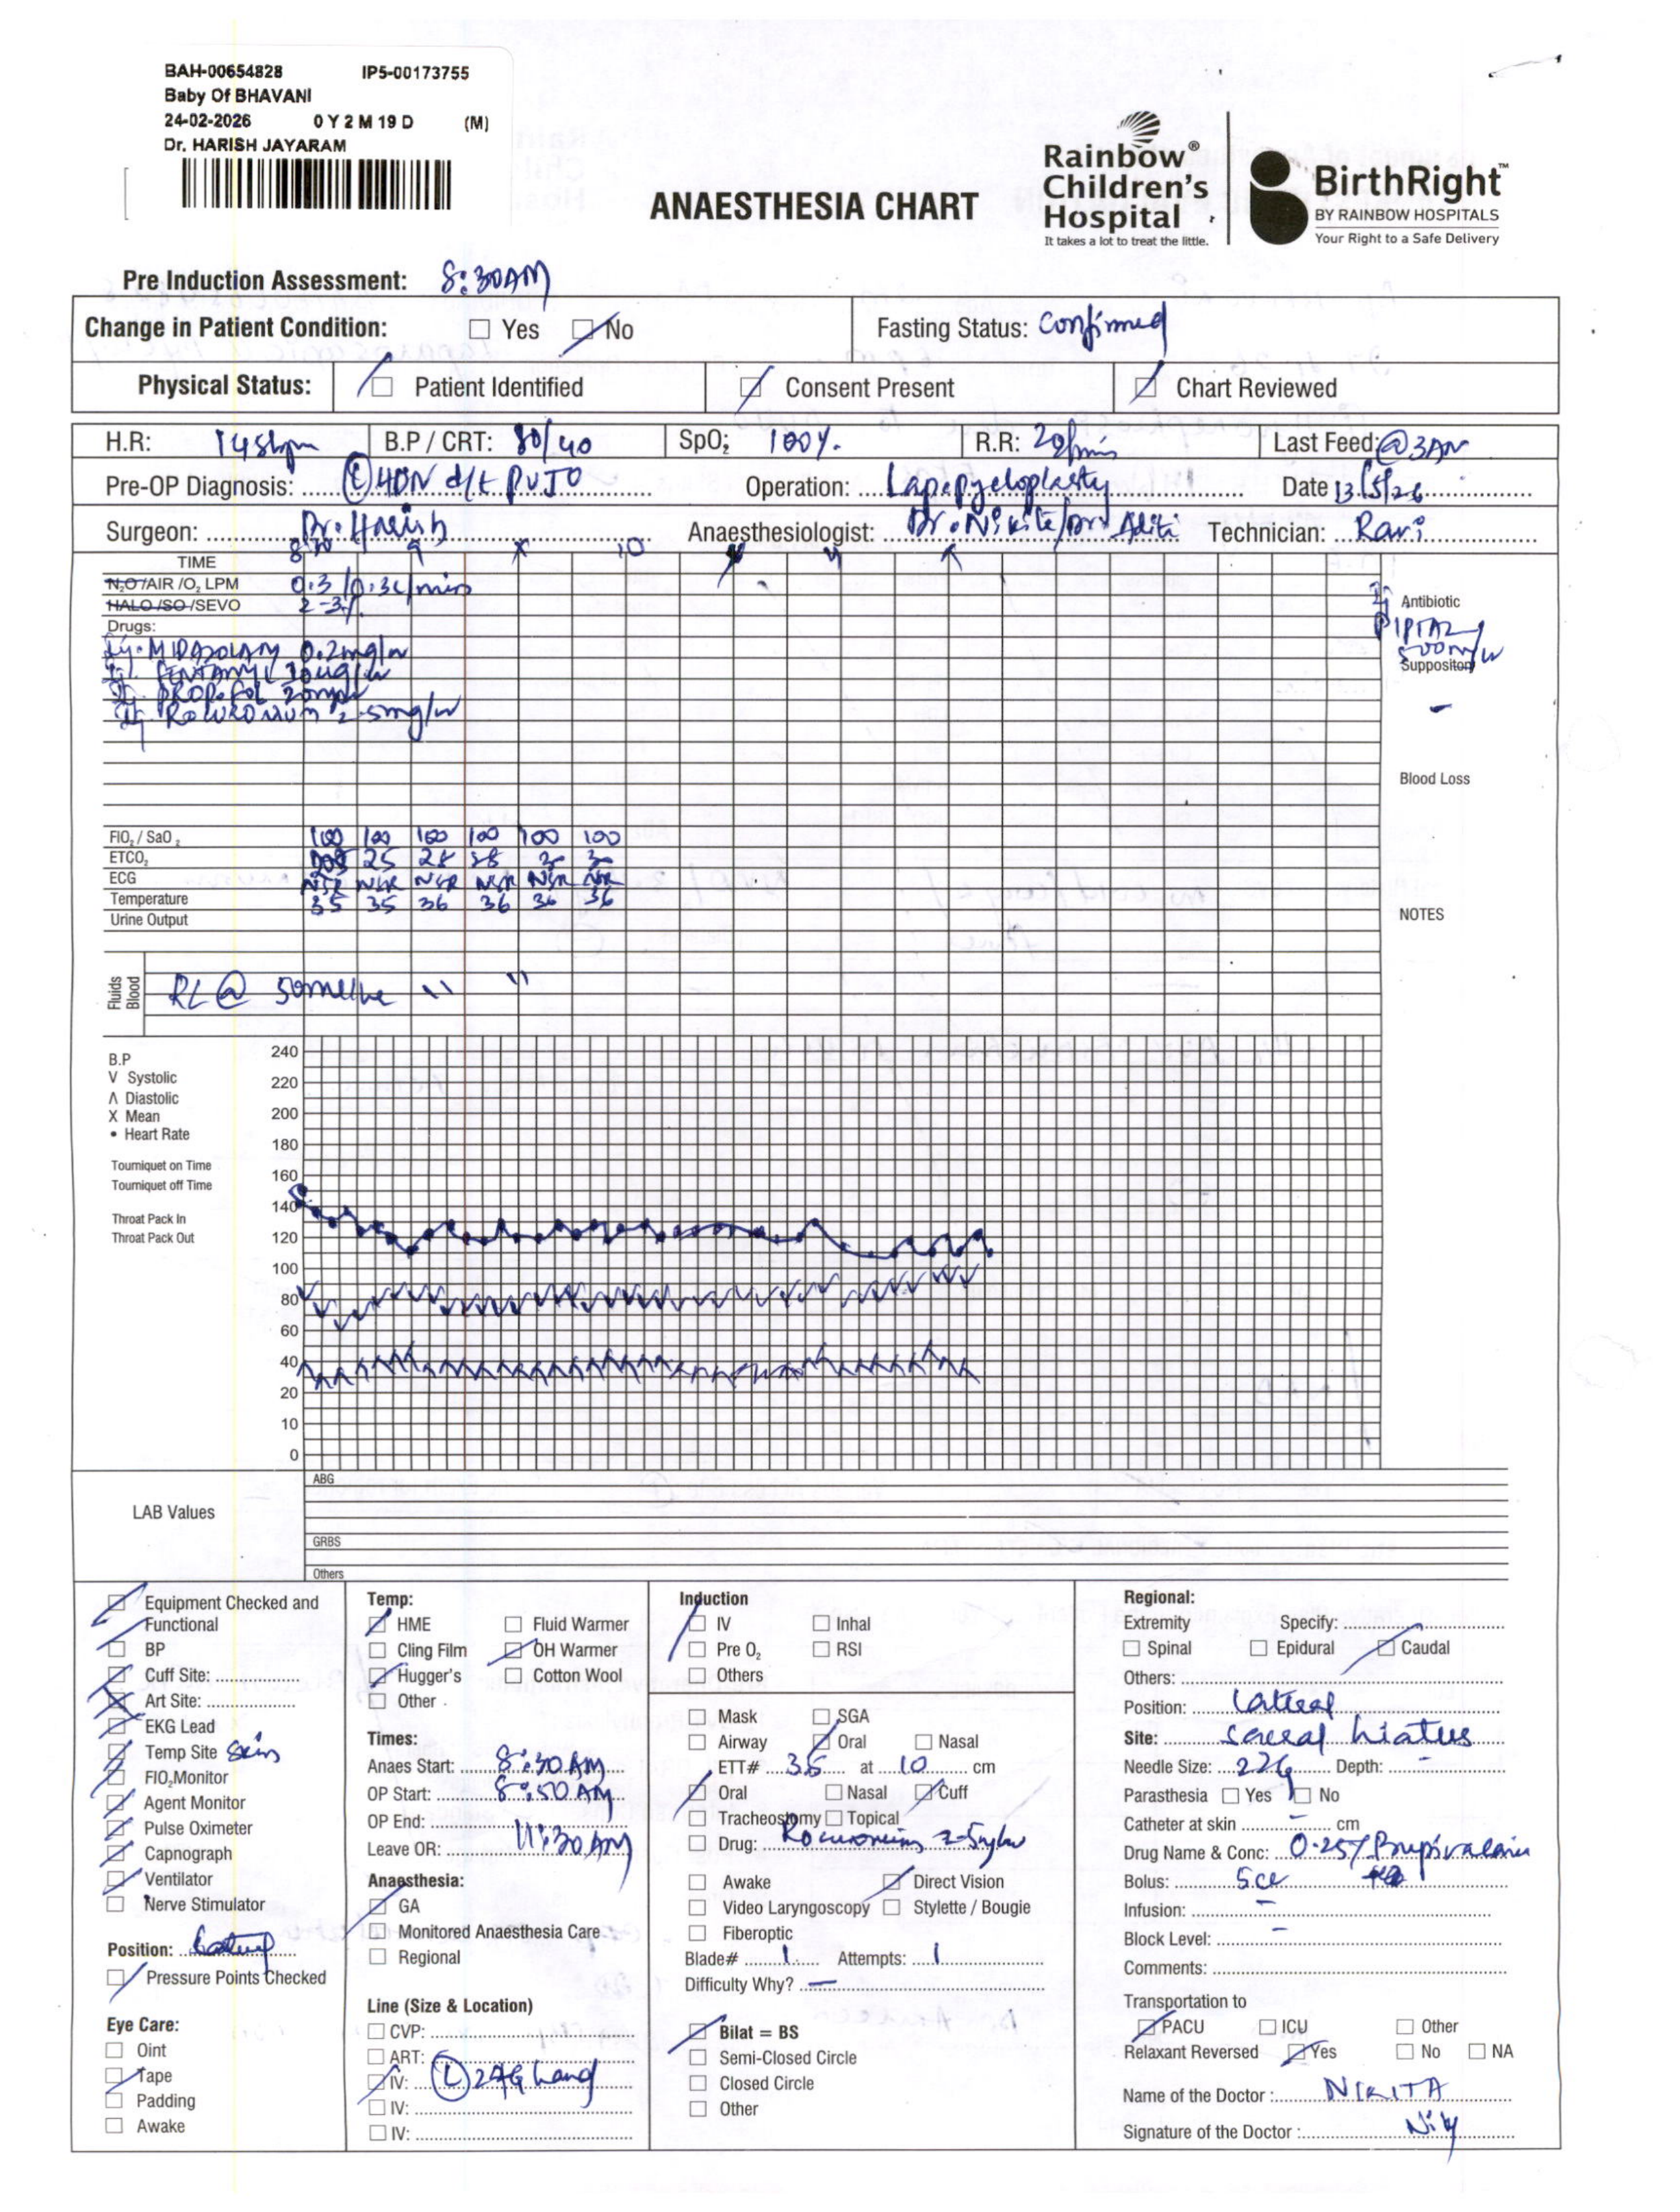 BAH-00654828 IP5-00173755
Baby Of BHAVANI
24-02-2026 0 Y 2 M 19 D (M)
Dr. HARISH JAYARAM
ANAESTHESIA CHART
Rainbow® Children's Hospital
It takes a lot to treat the little.
BirthRight™
BY RAINBOW HOSPITALS
Your Right to a Safe Delivery
Pre Induction Assessment: 8:30AM
Change in Patient Condition: Yes No Fasting Status: Confirmed
Physical Status: Patient Identified Consent Present Chart Reviewed
H.R: 145bpm B.P / CRT: 80/40 SpO2: 100%. R.R: 20/min Last Feed: @3AM
Pre-OP Diagnosis: (L) HDN d/t PUJO Operation: Lap. pyeloplasty Date 13/5/26
Surgeon: Dr. Harish Anaesthesiologist: Dr. Nikita/Dr. Aditi Technician: Ravi
TIME 8:30 9 X 10
N2O /AIR /O2 LPM 0.3/0.3L/min
HALO /SO /SEVO 2-3%
Drugs:
MIDAZOLAM 0.2mg/iv
FENTANYL 10ug/iv
PROPOFOL 20mg/iv
ROCURONIUM 2.5mg/iv
Antibiotic
PIPTAZ
500m/iv
Suppository
-
Blood Loss
FIO2 / SaO2 100 100 100 100 100 100
ETCO2 25 28 28 30 30
ECG NSR NSR NSR NSR NSR NSR
Temperature 35 35 36 36 36 36
Urine Output
NOTES
Fluids Blood RL @ 50ml/hr " "
B.P
V Systolic
Λ Diastolic
X Mean
• Heart Rate
Tourniquet on Time
Tourniquet off Time
Throat Pack In
Throat Pack Out
240
220
200
180
160
140
120
100
80
60
40
20
10
0
LAB Values
ABG
GRBS
Others
Equipment Checked and Functional
BP
Cuff Site:
Art Site:
EKG Lead
Temp Site Skin
FIO2 Monitor
Agent Monitor
Pulse Oximeter
Capnograph
Ventilator
Nerve Stimulator
Position:
Pressure Points Checked
Eye Care:
Oint
Tape
Padding
Awake
Temp:
HME Fluid Warmer
Cling Film OH Warmer
Hugger's Cotton Wool
Other
Times:
Anaes Start: 8:30 AM
OP Start: 8:50 AM
OP End:
Leave OR: 11:30 AM
Anaesthesia:
GA
Monitored Anaesthesia Care
Regional
Line (Size & Location)
CVP:
ART:
IV: (L) 24G hand
IV:
IV:
Induction
IV Inhal
Pre O2 RSI
Others
Mask SGA
Airway Oral Nasal
ETT# 3.5 at 10 cm
Oral Nasal Cuff
Tracheostomy Topical
Drug: Rocuronium 2.5mg/iv
Awake Direct Vision
Video Laryngoscopy Stylette / Bougie
Fiberoptic
Blade# 1 Attempts: 1
Difficulty Why? -
Bilat = BS
Semi-Closed Circle
Closed Circle
Other
Regional:
Extremity Specify:
Spinal Epidural Caudal
Others:
Position: Lateral
Site: sacral hiatus
Needle Size: 22g Depth: -
Parasthesia Yes No
Catheter at skin - cm
Drug Name & Conc: 0.25% Bupivacaine
Bolus: 5cc
Infusion: -
Block Level: -
Comments:
Transportation to
PACU ICU Other
Relaxant Reversed Yes No NA
Name of the Doctor : NIKITA
Signature of the Doctor :